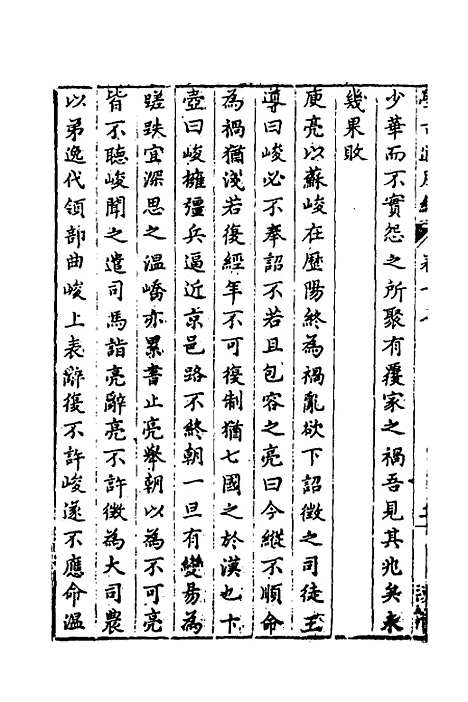 少華而不實怨之所聚有覆家之禍吾見其兆矣未
幾果敗
庾亮以蘇峻在歷陽終為禍亂欲下詔徵之司徒王
導曰峻必不奉詔不若且包容之亮曰今縱不順命
為禍猶淺若復經年不可復制猶七國之於漢也卞
壼曰峻擁彊兵逼近京邑路不終朝一旦有變易為
蹉跌宜深思之溫嶠亦累書止亮舉朝以為不可亮
皆不聽峻聞之遣司馬詣亮辭亮不許徵為大司農
以弟逸代領部曲峻上表辭復不許峻遂不應命溫